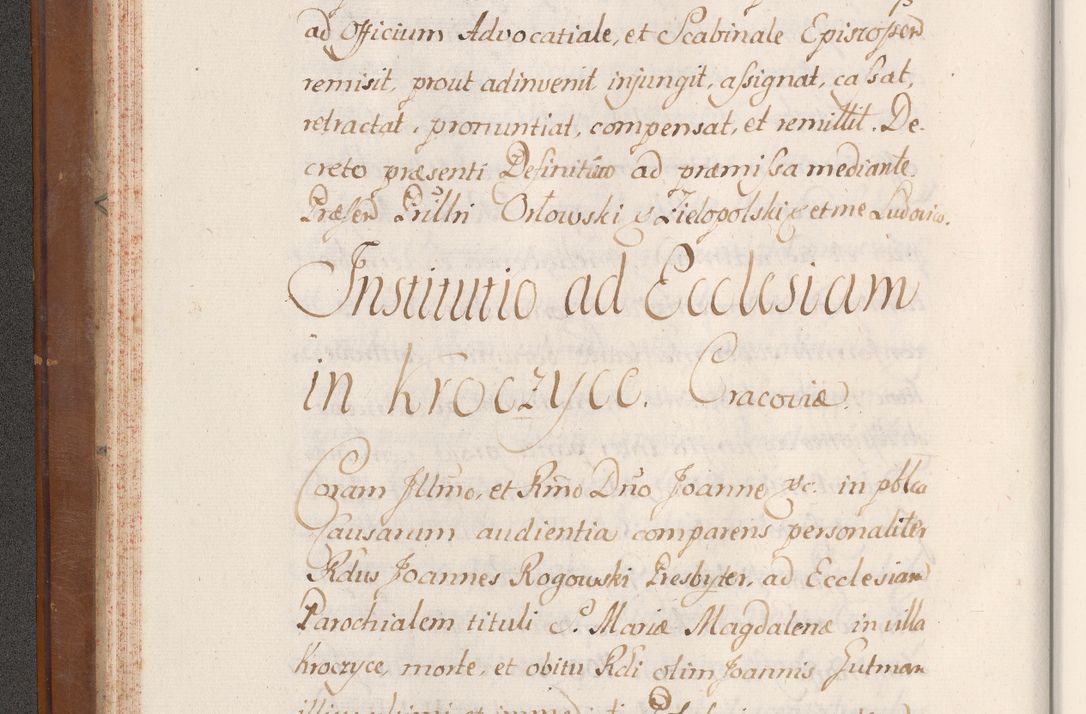 ad Officium Advocatiale, et Scabinale Episcopen
remisit, prout adinvenit, injungit, assignat, cassat,
retractat, pronuntiat, compensat, et remittit. De-
creto præsenti Definitivo ad præmissa mediante.
Præsen Prillri Orłowski & Zielopolski & et me Ludovico.
Institutio ad Ecclesiam
in Kroczyce. Cracoviæ.
Coram Jllmo, et Rmo Dno Joanne &c. in pblca
Causarum audientia comparens personaliter
Rdus Joannes Rogowski Presbyter, ad Ecclesiam
Parochialem tituli S. Mariæ Magdalenæ in villa
Kroczyce, morte, et obitu Rdi olim Joannis Gutman
illius ultimi et immediati